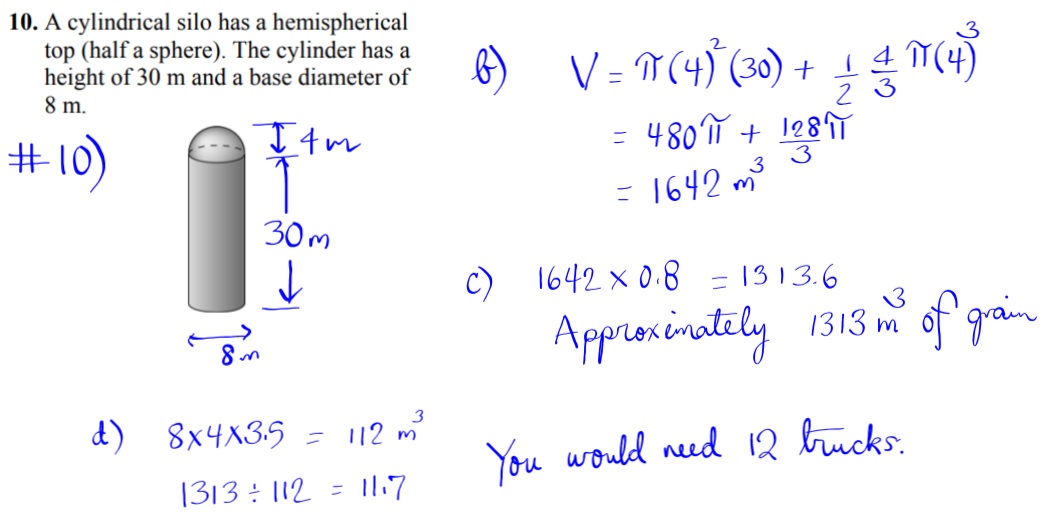 10. A cylindrical silo has a hemispherical
top (half a sphere). The cylinder has a
height of 30 m and a base diameter of
8 m.
#10)
4m
30m
8m
b) V = π(4)²(30) + 1/2 4/3 π(4)³
= 480π + 128π/3
= 1642 m³
c) 1642 × 0.8 = 1313.6
Approximately 1313 m³ of grain
d) 8×4×3.5 = 112 m³
1313 ÷ 112 = 11.7
You would need 12 trucks.